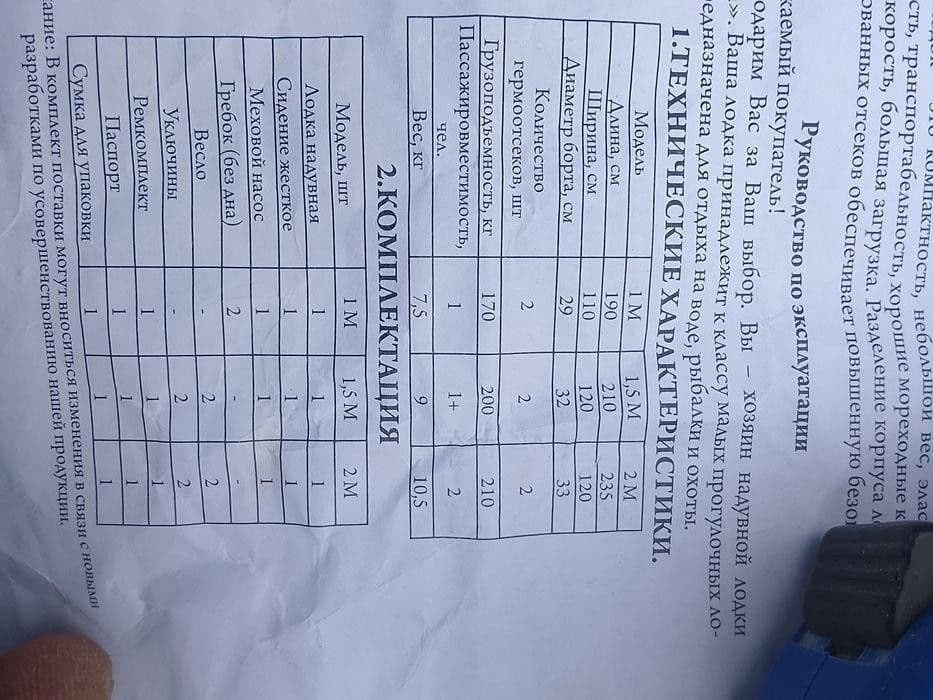 это компактность, небольшой вес, элас
сть, транспортабельность, хорошие мореходные к
корость, большая загрузка. Разделение корпуса ло
ованных отсеков обеспечивает повышенную безоп
Руководство по эксплуатации
каемый покупатель!
одарим Вас за Ваш выбор. Вы – хозяин надувной лодки
». Ваша лодка принадлежит к классу малых прогулочных ло-
едназначена для отдыха на воде, рыбалки и охоты.
1.ТЕХНИЧЕСКИЕ ХАРАКТЕРИСТИКИ.
Модель 1 М 1,5 М 2 М
Длина, см 190 210 235
Ширина, см 110 120 120
Диаметр борта, см 29 32 33
Количество
гермоотсеков, шт 2 2 2
Грузоподъемность, кг 170 200 210
Пассажировместимость,
чел. 1 1+ 2
Вес, кг 7,5 9 10,5
2.КОМПЛЕКТАЦИЯ
Модель, шт 1 М 1,5 М 2 М
Лодка надувная 1 1 1
Сидение жесткое 1 1 1
Меховой насос 1 1 1
Гребок (без дна) 2 - -
Весло - 2 2
Уключины - 2 2
Ремкомплект 1 1 1
Паспорт 1 1 1
Сумка для упаковки 1 1 1
ание: В комплект поставки могут вноситься изменения в связи с новыми
разработками по усовершенствованию нашей продукции.